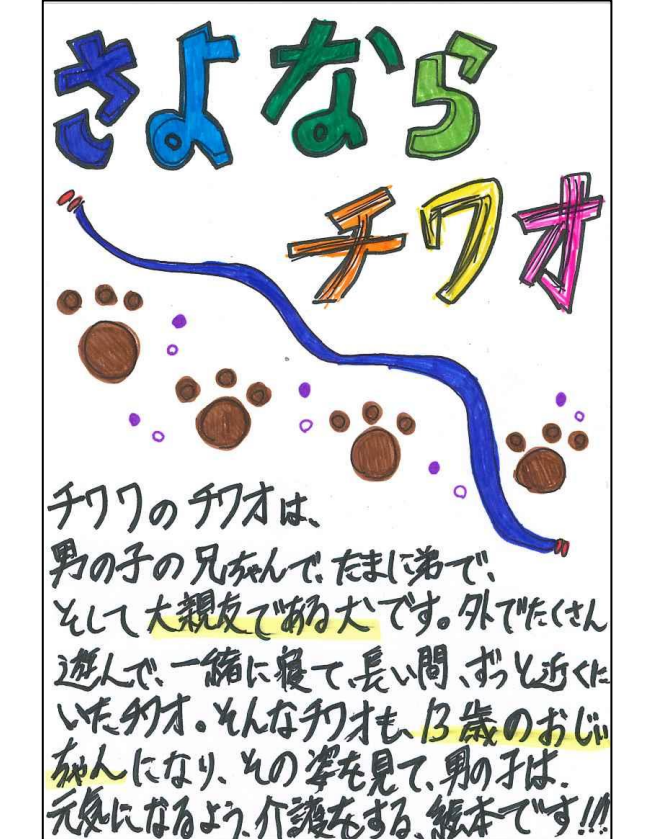 さよなら
チワオ
チワワのチワオは、
男の子の兄ちゃんで、たまに弟で、
そして大親友である犬です。外でたくさん
遊んで、一緒に寝て、長い間、ずっと近くに
いたチワオ。そんなチワオも、13歳のおじい
ちゃんになり、その姿を見て、男の子は、
元気になるよう、介護をする、絵本です!!!